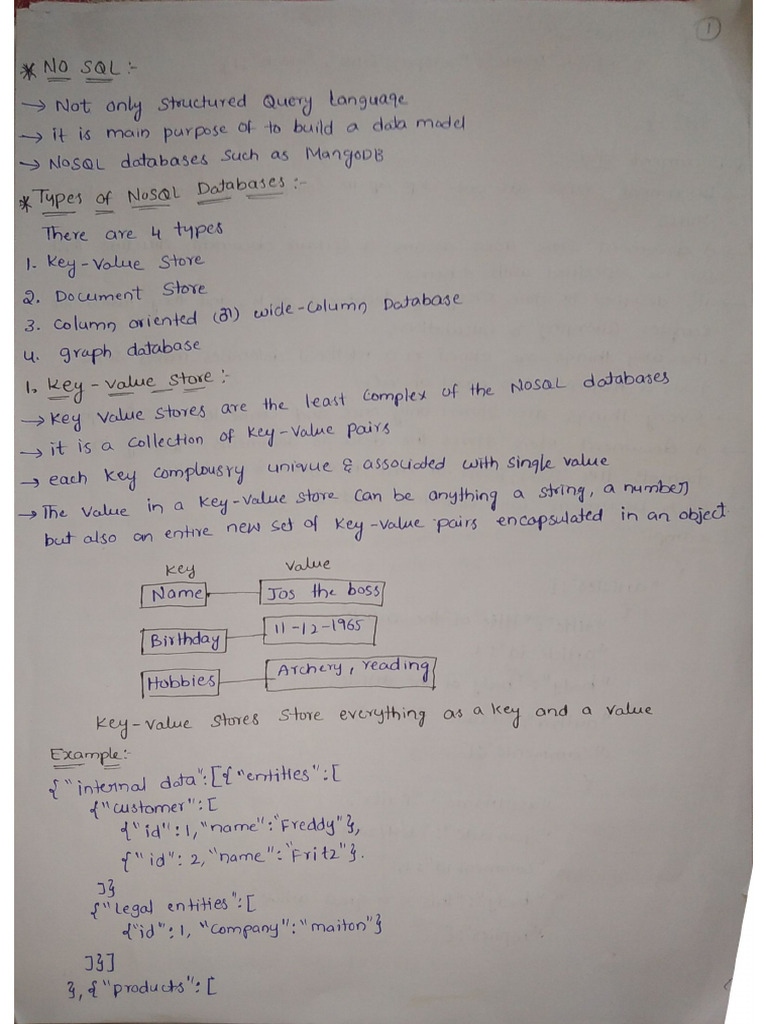 1
* NO SQL :-
→ Not only structured Query language
→ it is main purpose of to build a data model
→ NOSQL databases such as MangoDB
* Types of NoSQL Databases :-
There are 4 types
1. Key-Value Store
2. Document Store
3. Column oriented (or) wide-column Database
4. graph database
1. Key-value store :-
→ Key value stores are the least complex of the NOSQL databases
→ it is a collection of key-value pairs
→ each key complousry univue & associded with single value
→ The value in a key-value store can be anything a string, a number
but also an entire new set of key-value pairs encapsulated in an object
Key Value
Name Jos the boss
Birthday 11-12-1965
Hobbies Archery, reading
Key-value stores store everything as a key and a value
Example:-
{"internal data":[{"entities":[
{"customer":[
{"id":1,"name":"Freddy"},
{"id":2,"name":"Fritz"}.
]}
{"Legal entities":[
{"id":1,"company":"maiton"}
]}]
},{"products":[